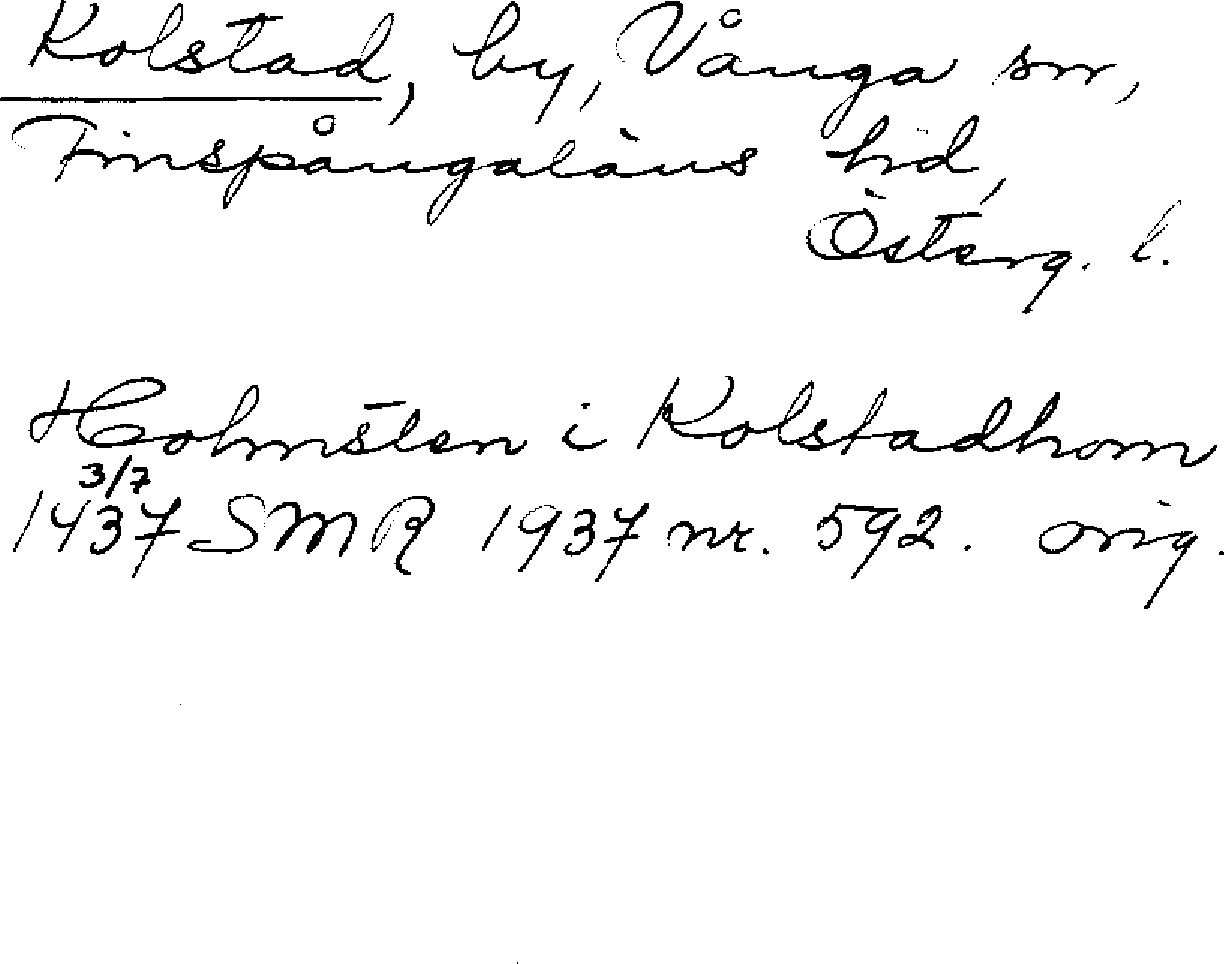 Kolstad, by, Vånga sn,
Finspångaläns hd,
Österg. l.
Holmsten i Kolstadhom
3/7
1437 SMR 1937 nr. 592. orig.